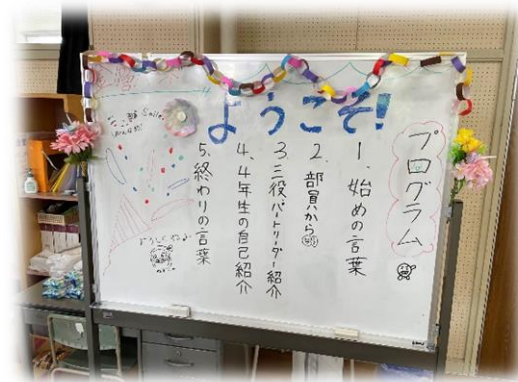 ようこそ!
プログラム
1. 始めの言葉
2. 部員から
3. 三役・パートリーダー紹介
4. 4年生の自己紹介
5. 終わりの言葉